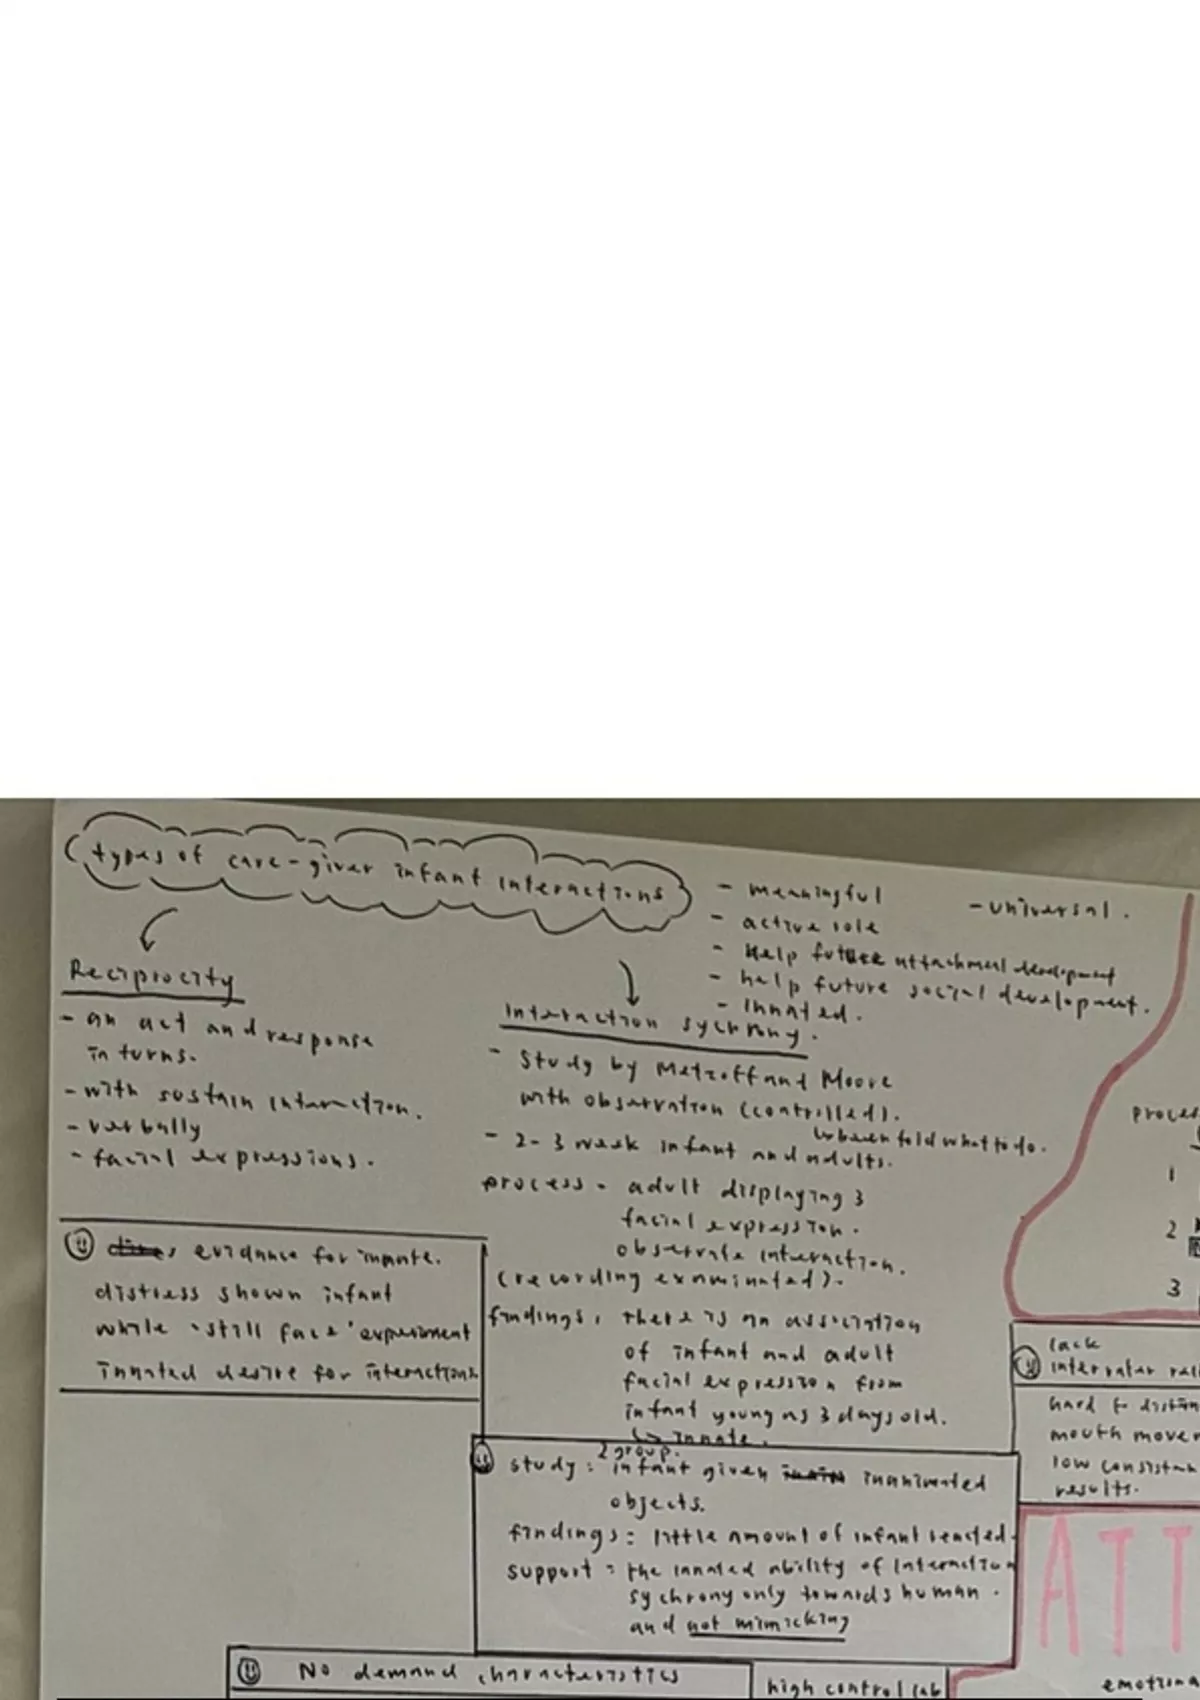 types of care-giver infant interactions
- meaningful
- universal.
- active role
- Help future attachment development
- help future social development.
- Innated.
Reciprocity
- an act and response
in turns.
- with sustain interaction.
- verbally
- facial expressions.
evidance for innate.
distress shown infant
while 'still face' experiment
innated desire for interactions
Interaction sychrony.
- Study by Metzoff and Moore
with observation (controlled).
been told what to do.
- 2-3 week infant and adults.
process - adult displaying 3
facial expression.
obsetrate interaction.
(recording exnminated).
findings: there is an association
of infant and adult
facial expression from
infant young as 3 days old.
↳ innate.
2 group.
study: infant given inanimated
objects.
findings: little amount of infant reacted.
support: the innated ability of Interaction
sychrony only towards human.
and not mimicking
No demand characteristics
high control lab
proces
1
2
3
lack
interrater
hard to
mouth
low
results.
ATT
emotiona